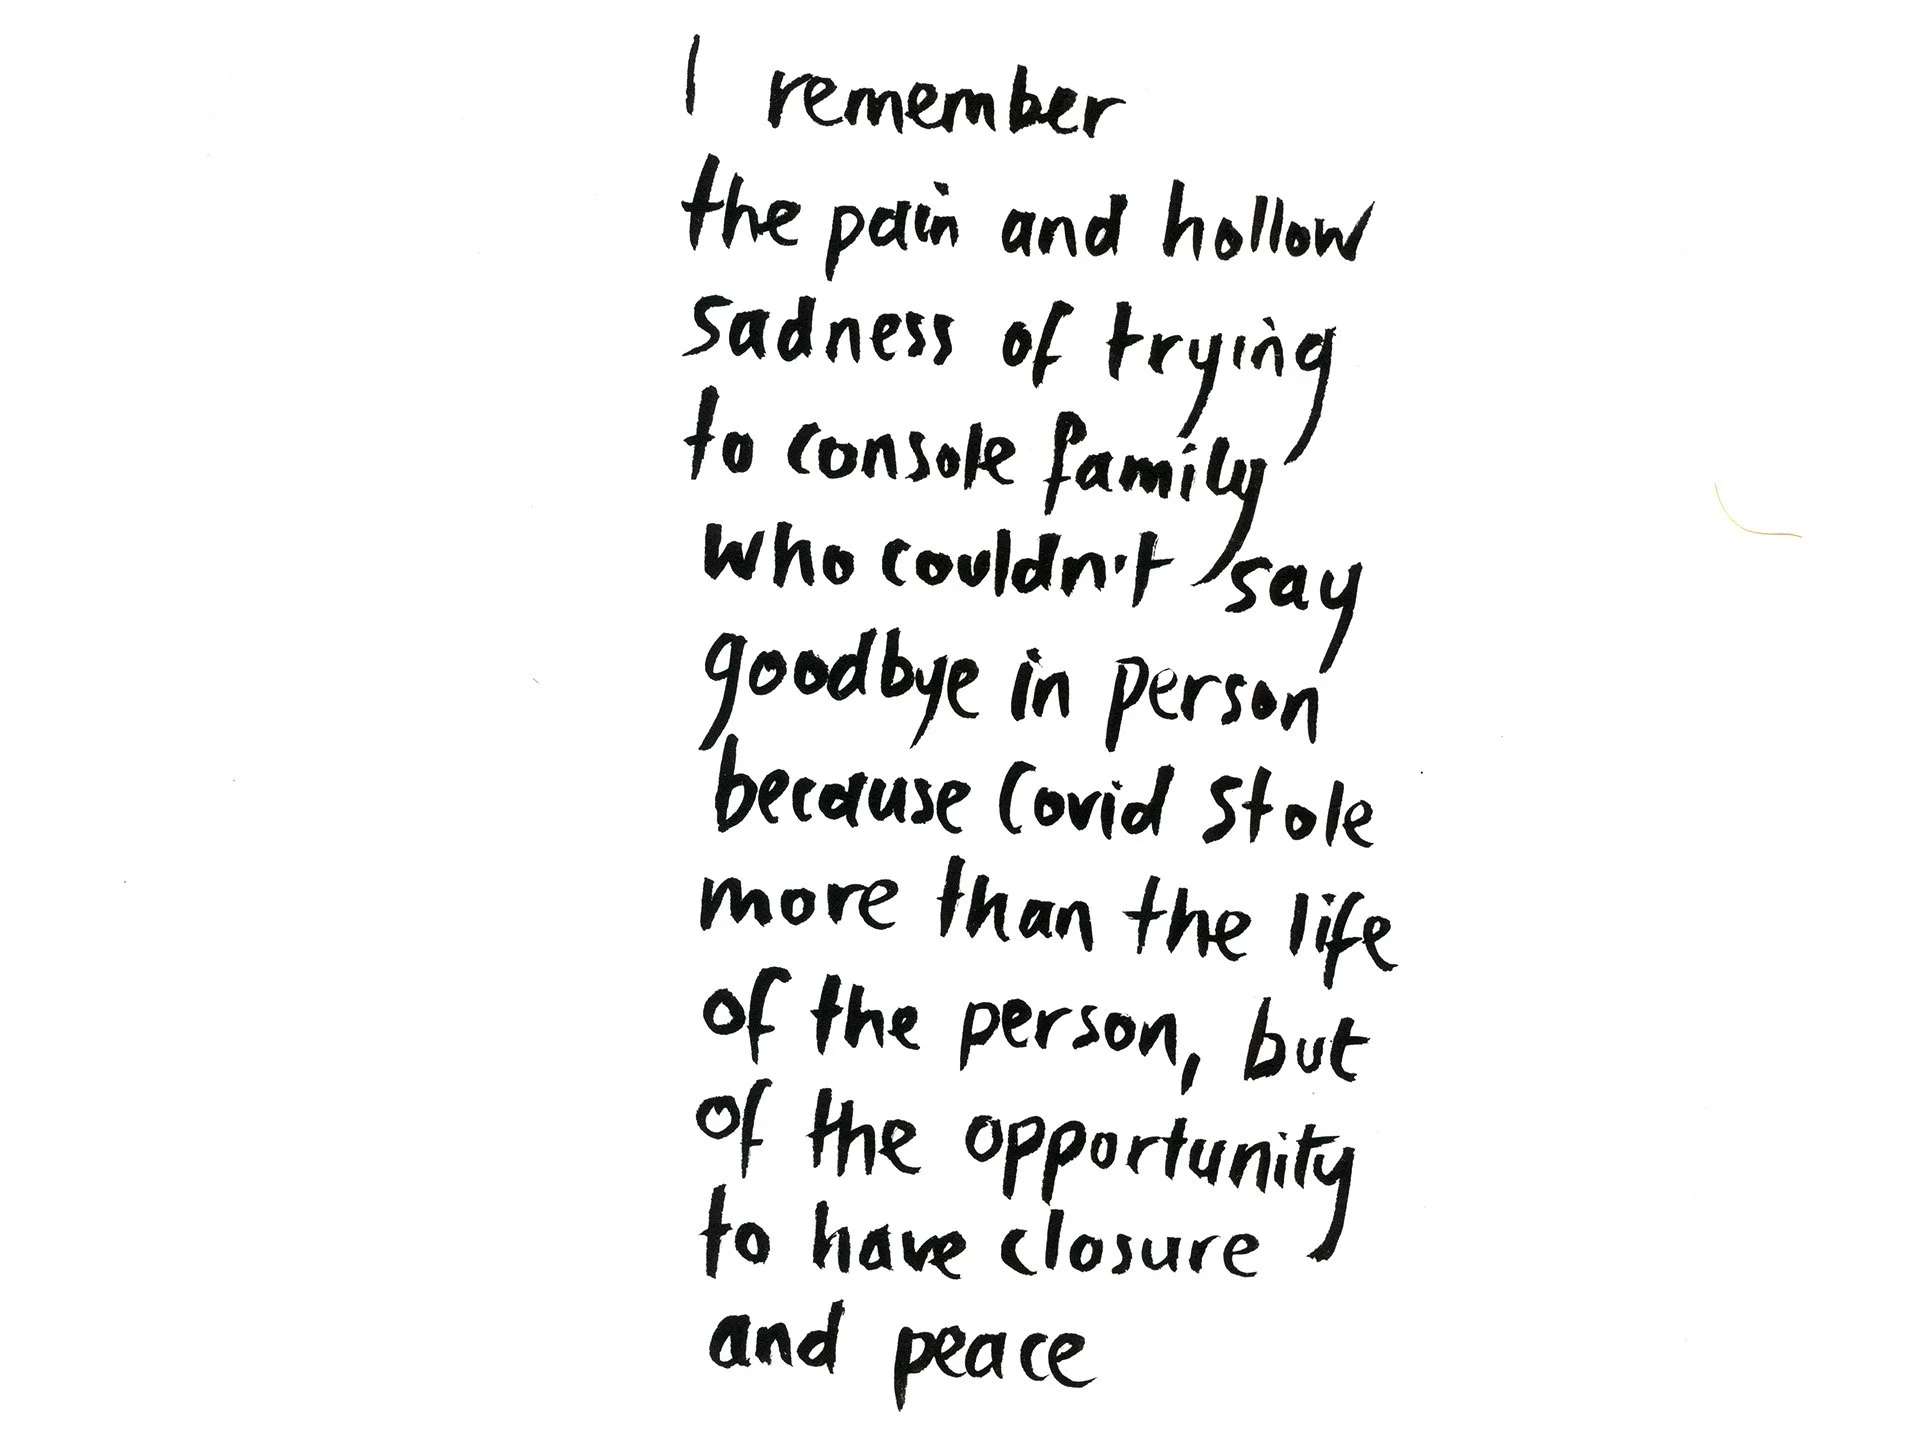 I remember
the pain and hollow
sadness of trying
to console family
who couldn't say
goodbye in person
because Covid stole
more than the life
of the person, but
of the opportunity
to have closure
and peace